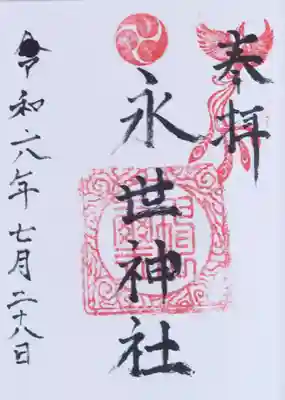 奉拝
永世神社
令和六年七月二十八日